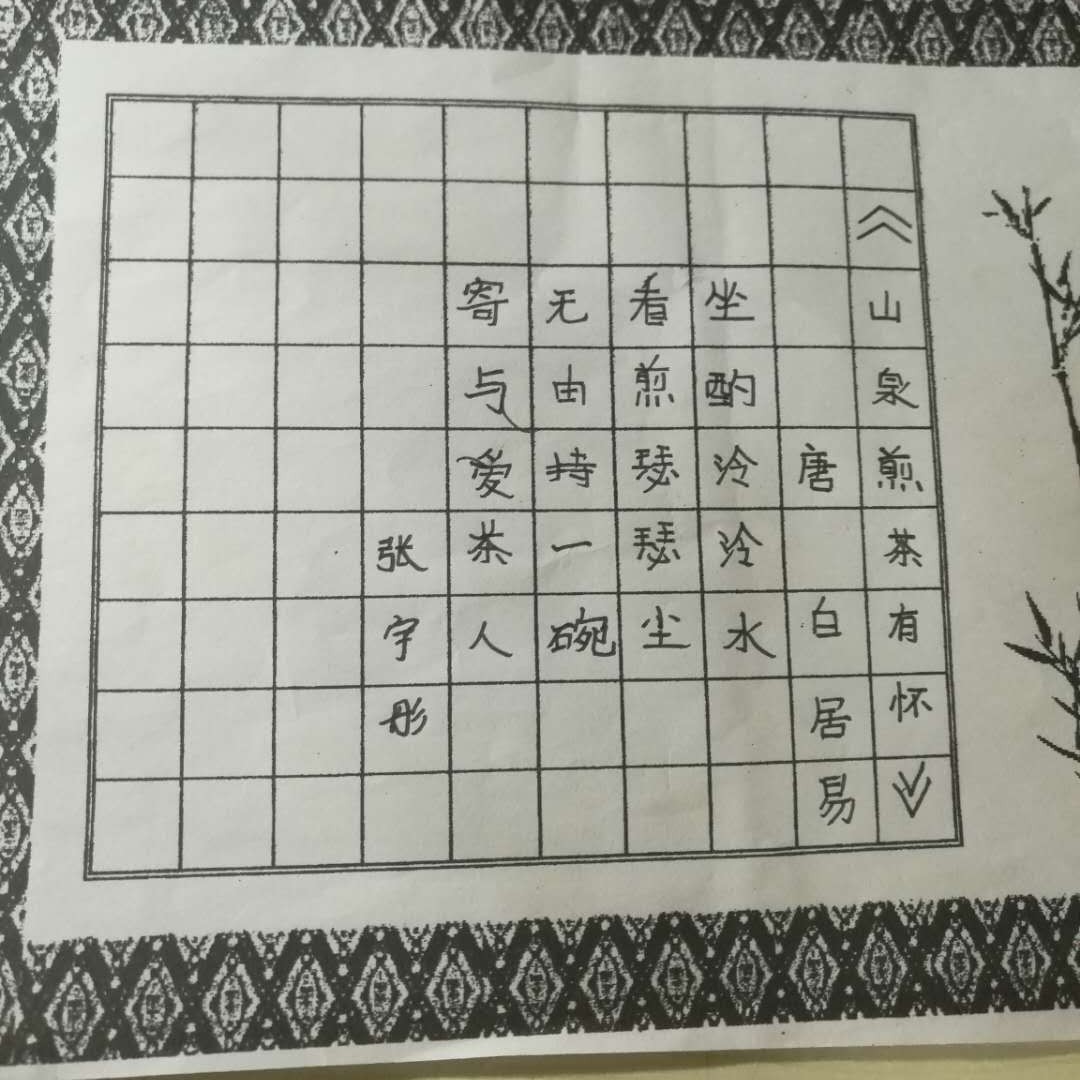 《山泉煎茶有怀》
唐 白居易
坐酌泠泠水
看煎瑟瑟尘
无由持一碗
寄与爱茶人
张宇彤